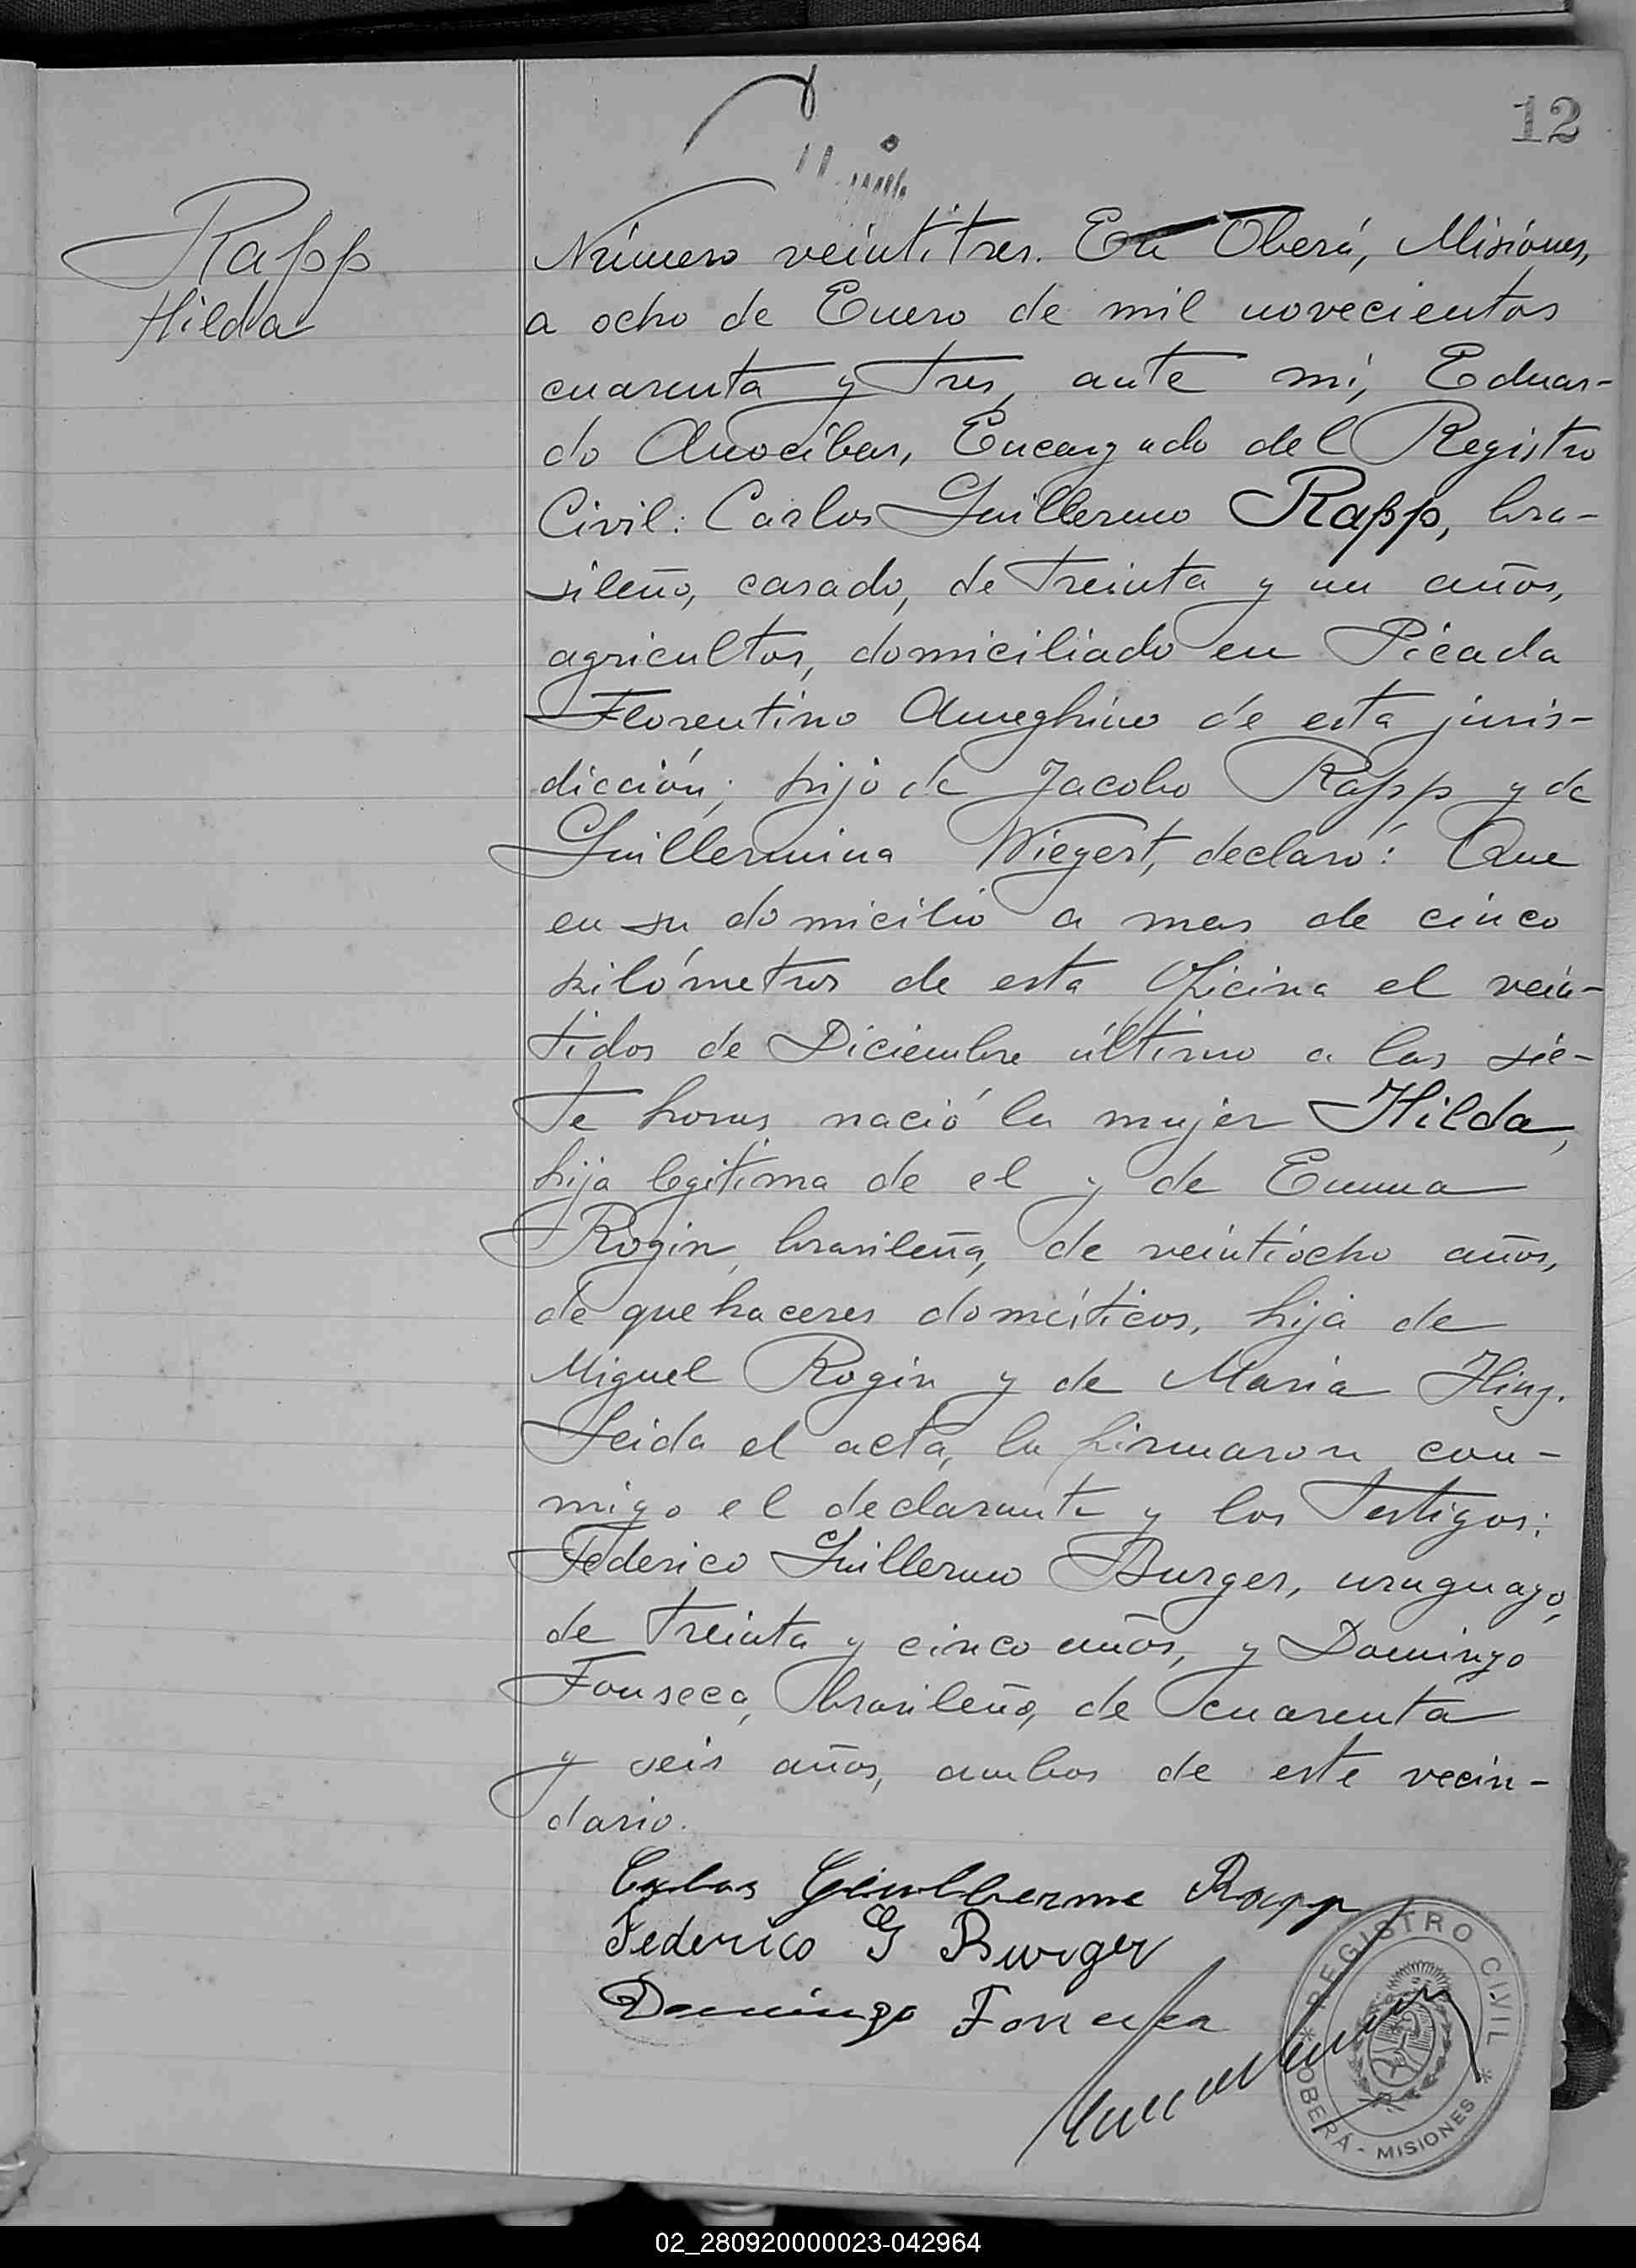 12
Rapp
Hilda
Número veintitres. En Oberá, Misiones,
a ocho de Enero de mil novecientos
cuarenta y tres, ante mí, Eduar-
do Anocíbar, Encargado del Registro
Civil: Carlos Guillermo Rapp, bra-
sileño, casado, de treinta y un años,
agricultor, domiciliado en Picada
Florentino Ameghino de esta juris-
dicción; hijo de Jacobo Rapp y de
Guillermina Wiegert, declaró: Que
en su domicilio a mas de cinco
kilómetros de esta Oficina el vein-
tidos de Diciembre último a las sie-
te horas nació la mujer Hilda,
hija legítima de el y de Emma
Rogin, brasileña, de veintiocho años,
de quehaceres domésticos, hija de
Miguel Rogin y de Maria Hinz.
Leida el acta, la firmaron con-
migo el declarante y los testigos:
Federico Guillermo Burger, uruguayo,
de treinta y cinco años, y Domingo
Fonseca, brasileño, de cuarenta
y seis años, ambos de este vecin-
dario.
Carlos Guilherme Rapp
Federico G Burger
Domingo Fonseca
REGISTRO CIVIL
* OBERÁ - MISIONES *
02_280920000023-042964